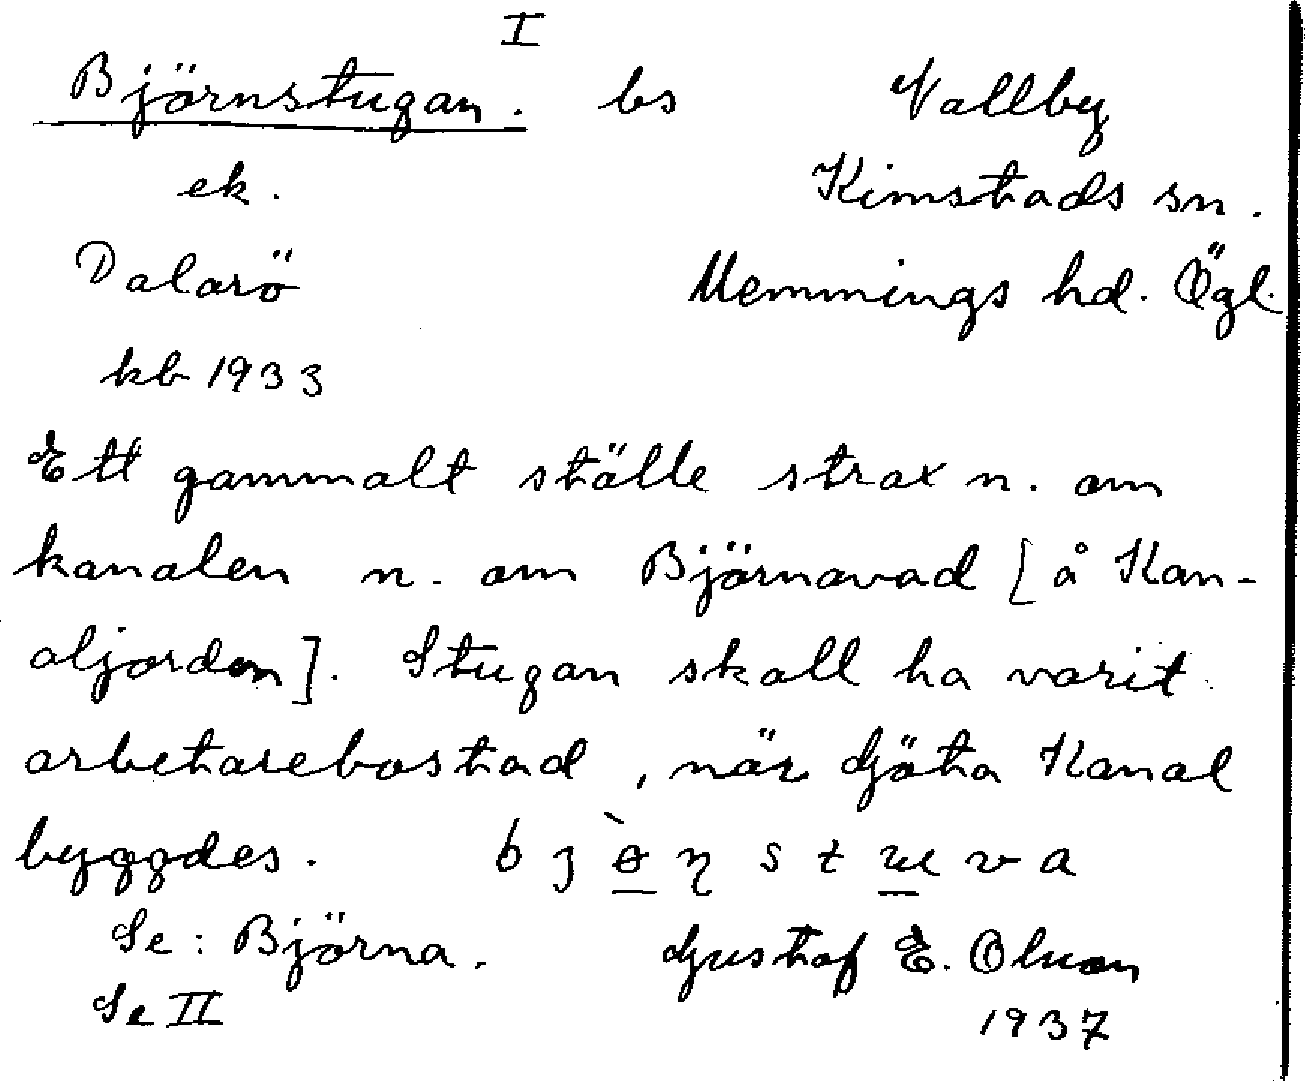 I
Björnstugan. bs Vallby
ek. Kimstads sn.
Dalarö Memmings hd. Ögl.
kb 1933
Ett gammalt ställe strax n. om
kanalen n. om Björnavad [å Kan-
aljorden]. Stugan skall ha varit
arbetarebostad, när Göta Kanal
byggdes.
Se: Björna. Gustaf E. Olsson
Se II 1937